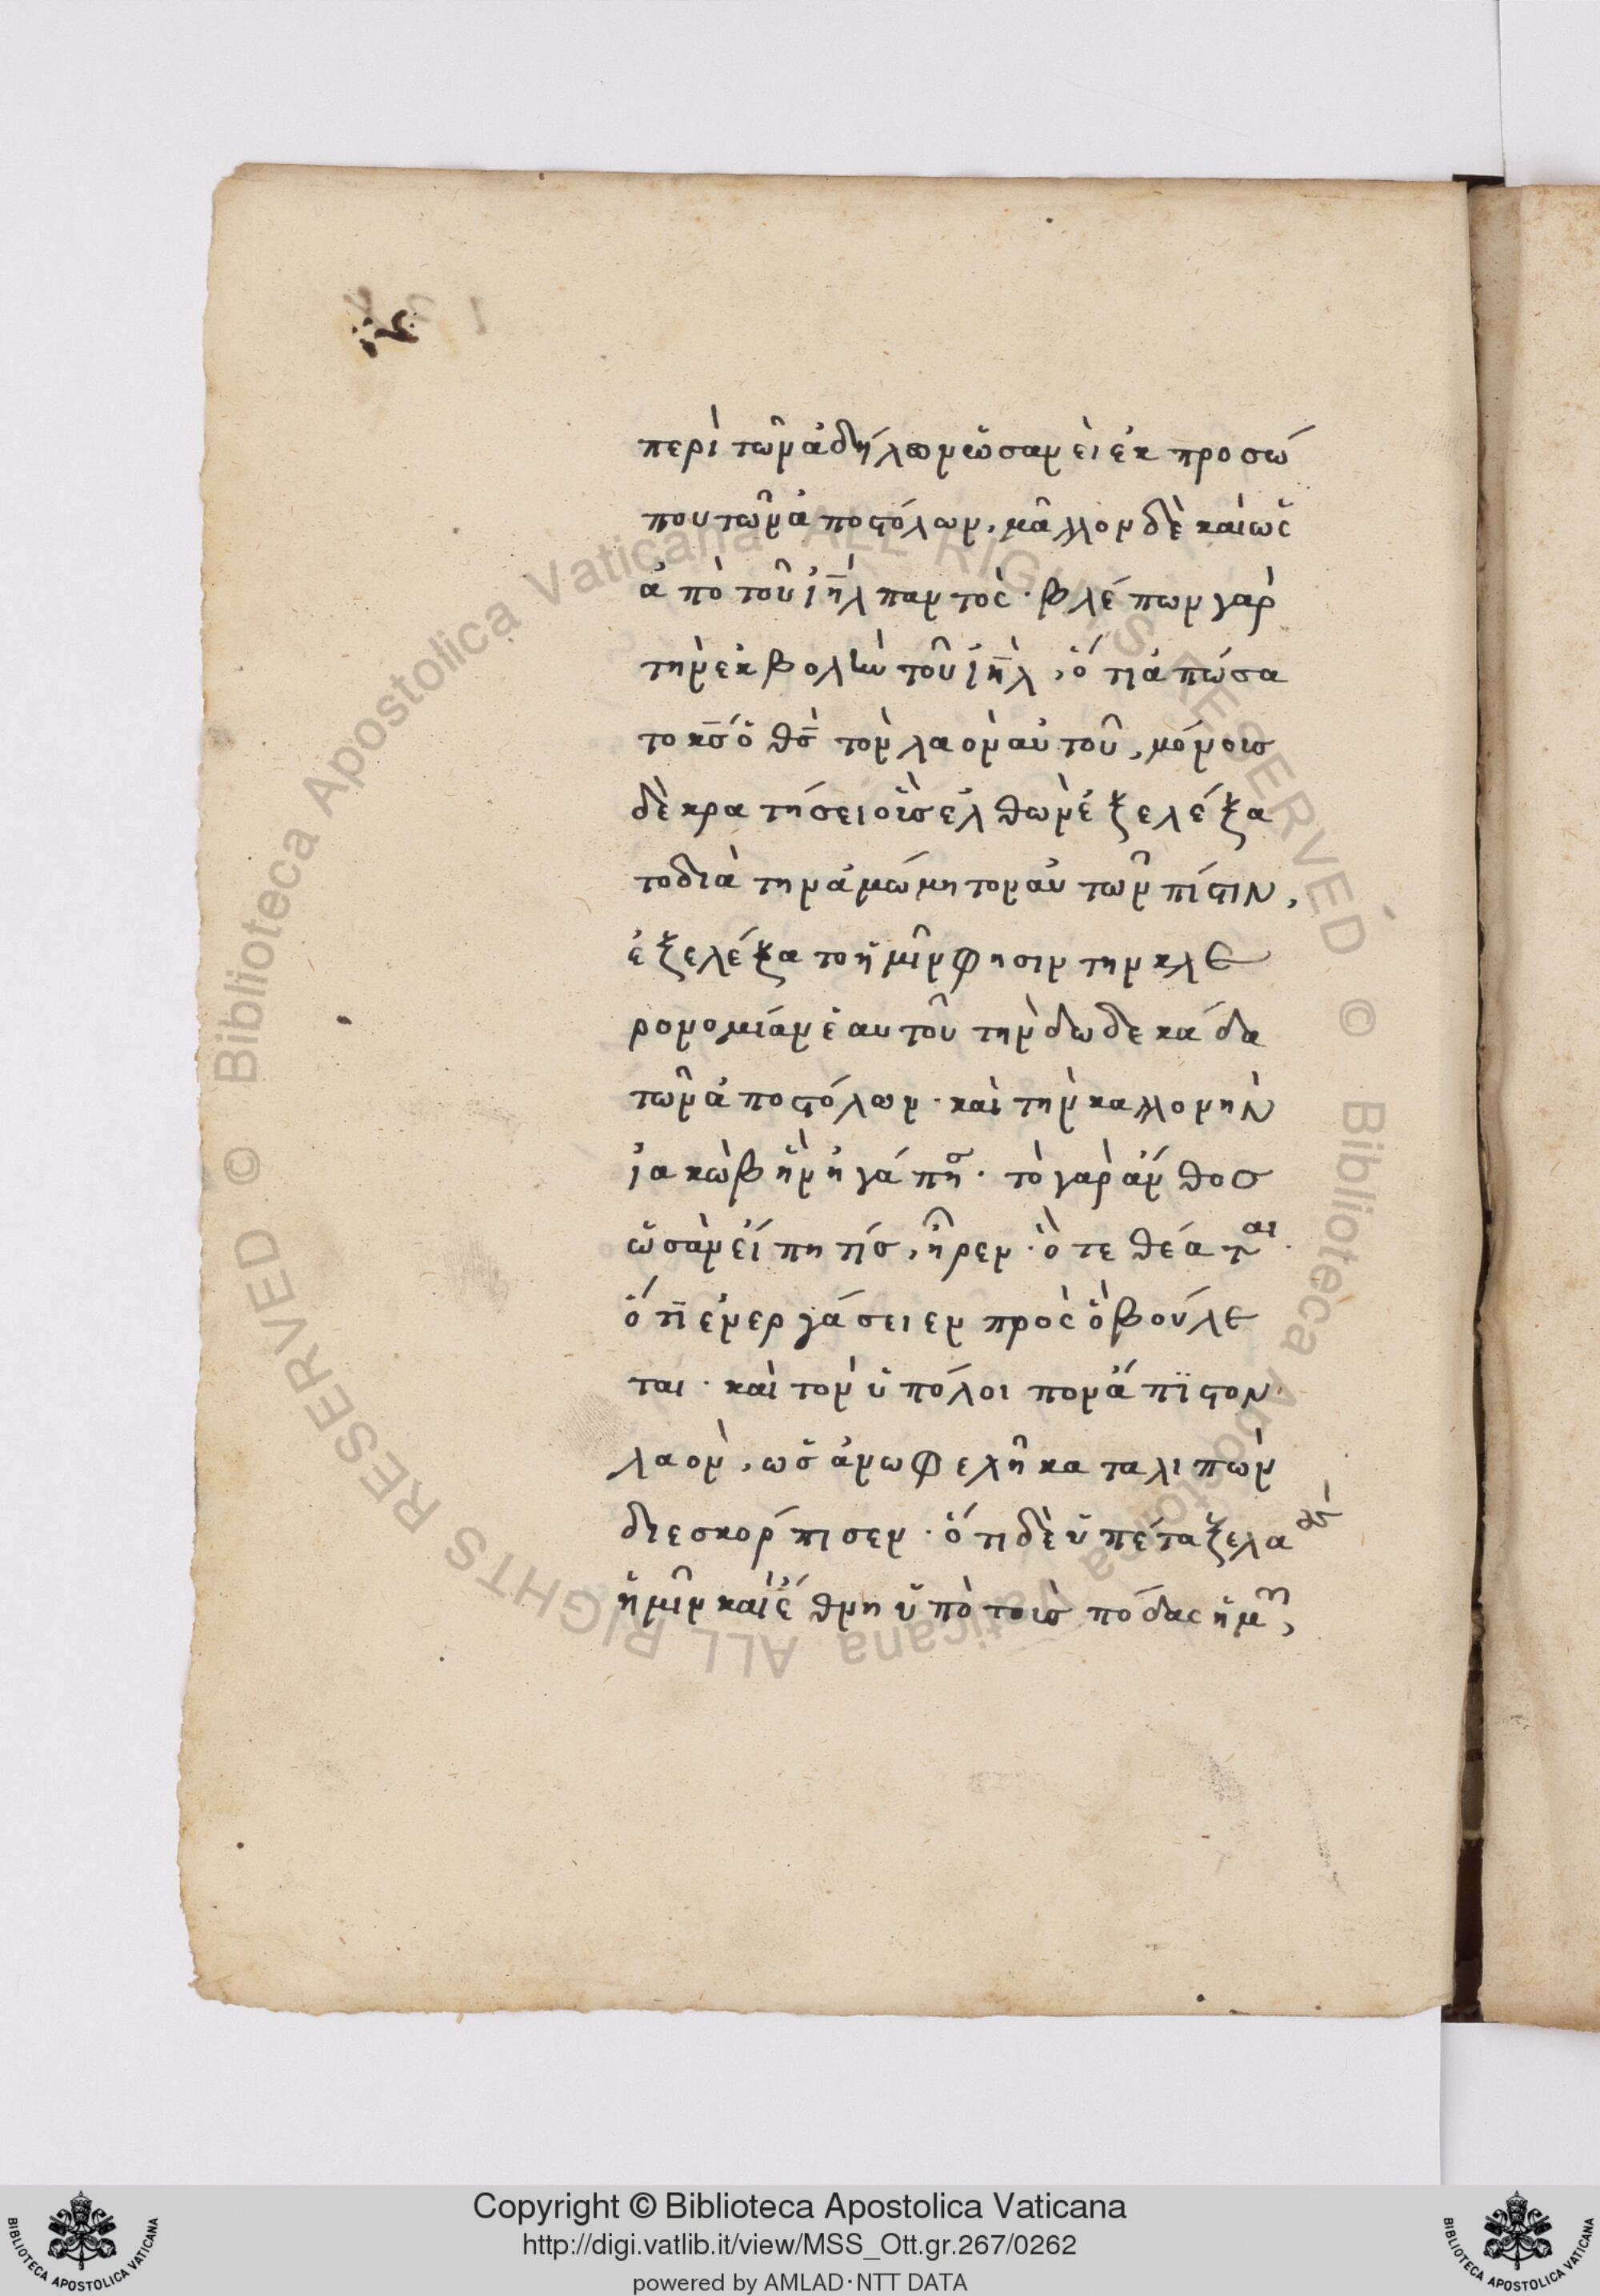 περὶ τῶν ἀδήλων ὡσανεὶ ἐκ προσώ
που τῶν ἀποστόλων, μᾶλλον δὲ καὶ ὡς
ἀπὸ τοῦ ἰη̅λ παντός· βλέπων γὰρ
τὴν ἐκβολὴν τοῦ ἰη̅λ, ὅτι ἀπώσα
το κ̅ς ὁ θ̅ς τὸν λαὸν αὐτοῦ, μόνοις
δὲ κρατήσει οἷς ἐλθὼν ἐξελέξα
το διὰ τὴν ἀμώμητον αὐτῶν πίστιν,
ἐξελέξατο ἡμῖν φησιν την κλε
ρονομίαν ἑαυτοῦ τὴν δωδεκάδα
τῶν ἀποστόλων· καὶ τὴν καλλονὴν
ἰακὼβ ἣν ἠγάπησ· τὸ γὰρ ἄνθος
ὡσὰν εἴπῃ τίς, ἦρεν· ὃ τεθέαται·
ὅτι ἐνεργάσειεν πρὸς ὃ βούλε
ται· καὶ τὸν ὑπόλοιπον ἄπιστον
λαὸν, ὡς ἀνωφελῆ καταλιπὼν
διεσκόρπισεν· ὅτι δὲ ὑπέταξε λα
ἡμῖν καὶ ἔθνη ὑπὸ τοὺς πόδας ἡμῶν,
Copyright © Biblioteca Apostolica Vaticana
http://digi.vatlib.it/view/MSS_Ott.gr.267/0262
powered by AMLAD·NTT DATA
BIBLIOTECA APOSTOLICA VATICANA
BIBLIOTECA APOSTOLICA VATICANA
© Biblioteca Apostolica Vaticana ALL RIGHTS RESERVED © Biblioteca Apostolica Vaticana ALL RIGHTS RESERVED